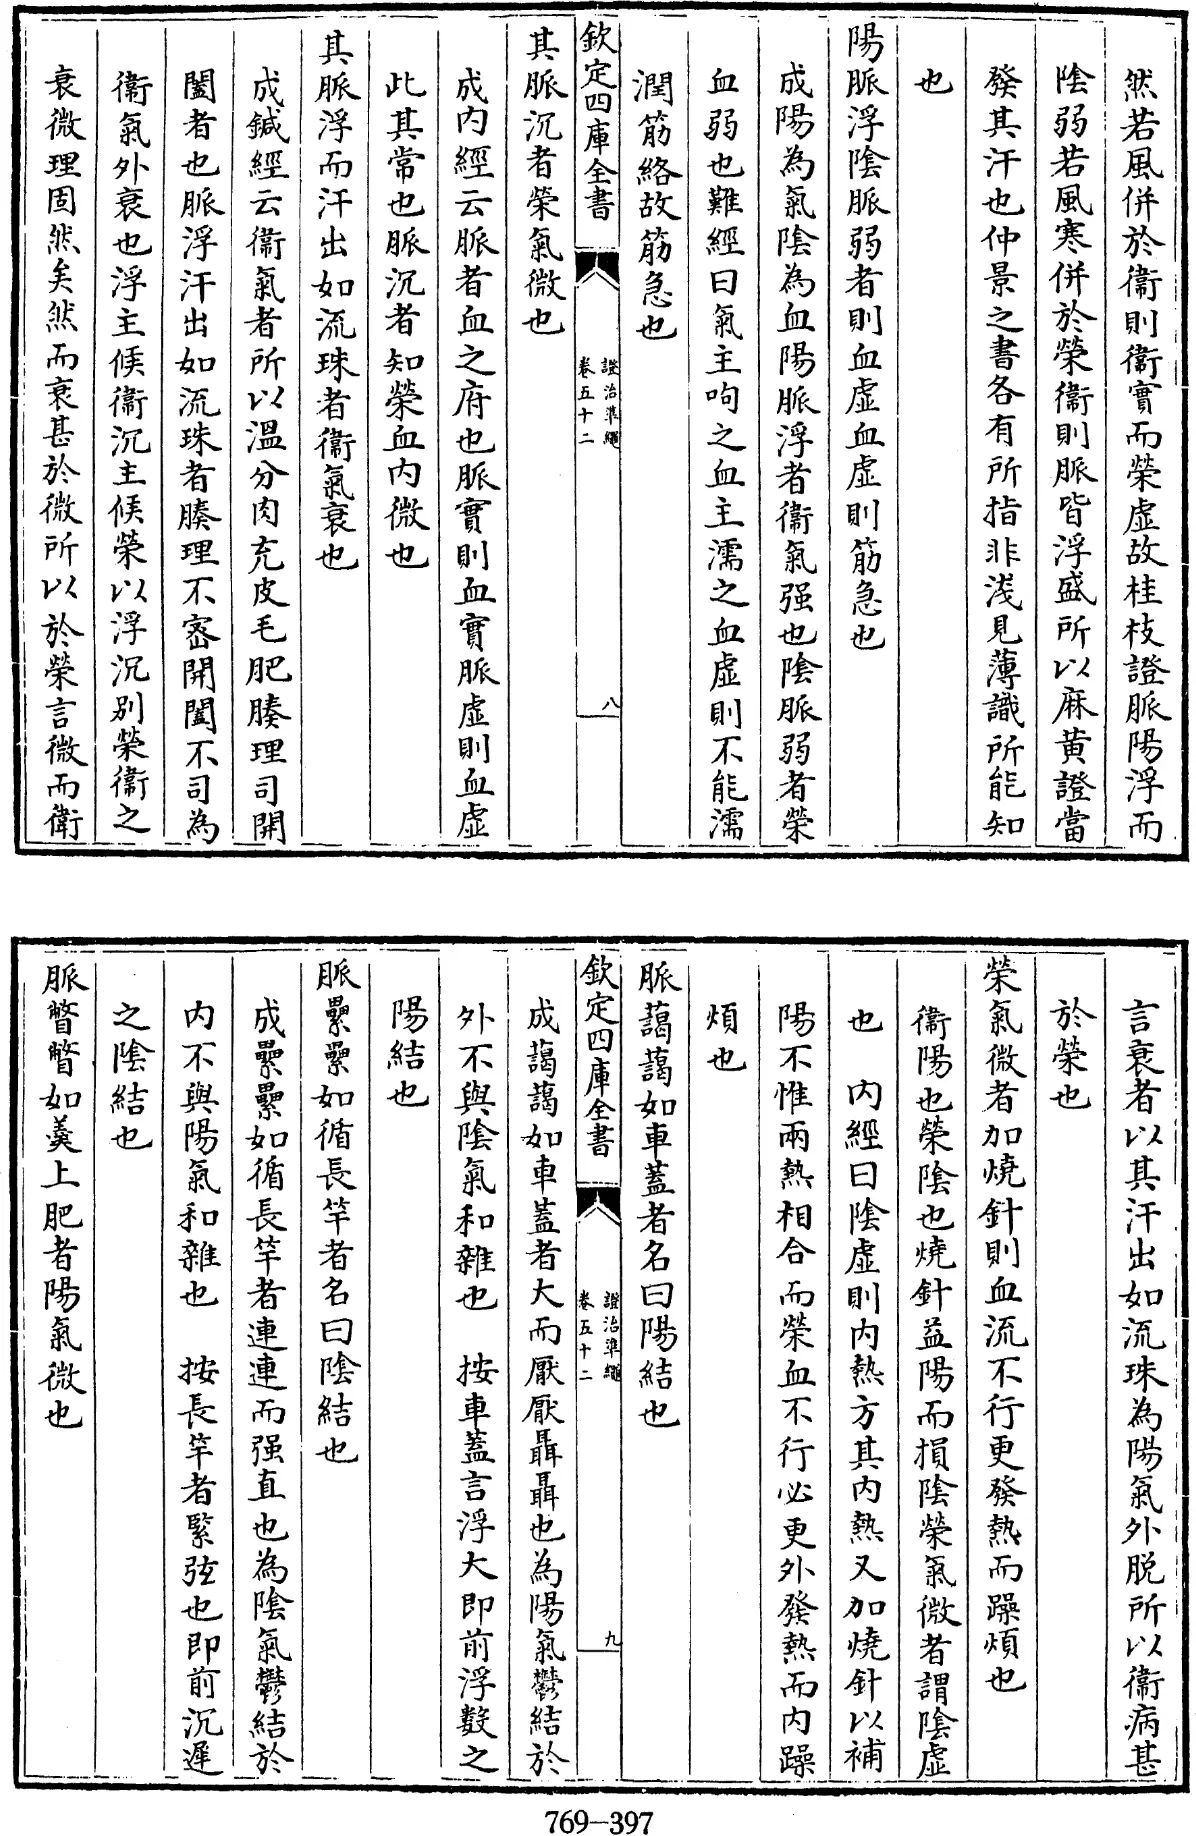 然若風併於衞則衞實而榮虛故桂枝證脈陽浮而
陰弱若風寒併於榮衞則脈皆浮盛所以麻黄證當
發其汗也仲景之書各有所指非淺見薄識所能知
也
陽脈浮陰脈弱者則血虛血虛則筋急也
成陽為氣陰為血陽脈浮者衞氣强也陰脈弱者榮
血弱也難經曰氣主呴之血主濡之血虛則不能濡
潤筋絡故筋急也
欽定四庫全書
證治準繩
卷五十二
八
其脈沉者榮氣微也
成内經云脈者血之府也脈實則血實脈虛則血虛
此其常也脈沉者知榮血内微也
其脈浮而汗出如流珠者衞氣衰也
成鍼經云衞氣者所以溫分肉充皮毛肥腠理司開
闔者也脈浮汗出如流珠者腠理不宻開闔不司為
衞氣外衰也浮主候衞沉主候榮以浮沉别榮衞之
衰微理固然矣然而衰甚於微所以於榮言微而衛
言衰者以其汗出如流珠為陽氣外脱所以衞病甚
於榮也
榮氣微者加燒針則血流不行更發熱而躁煩也
衞陽也榮陰也燒針益陽而損陰榮氣微者謂陰虛
也　内經曰陰虛則内熱方其内熱又加燒針以補
陽不惟兩熱相合而榮血不行必更外發熱而内躁
煩也
脈藹藹如車蓋者名曰陽結也
欽定四庫全書
證治準繩
卷五十二
九
成藹藹如車蓋者大而厭厭聶聶也為陽氣鬱結於
外不與陰氣和雜也　按車蓋言浮大即前浮數之
陽結也
脈纍纍如循長竿者名曰陰結也
成纍纍如循長竿者連連而强直也為陰氣鬱結於
内不與陽氣和雜也　按長竿者緊弦也即前沉遲
之陰結也
脈瞥瞥如羮上肥者陽氣微也
769-397